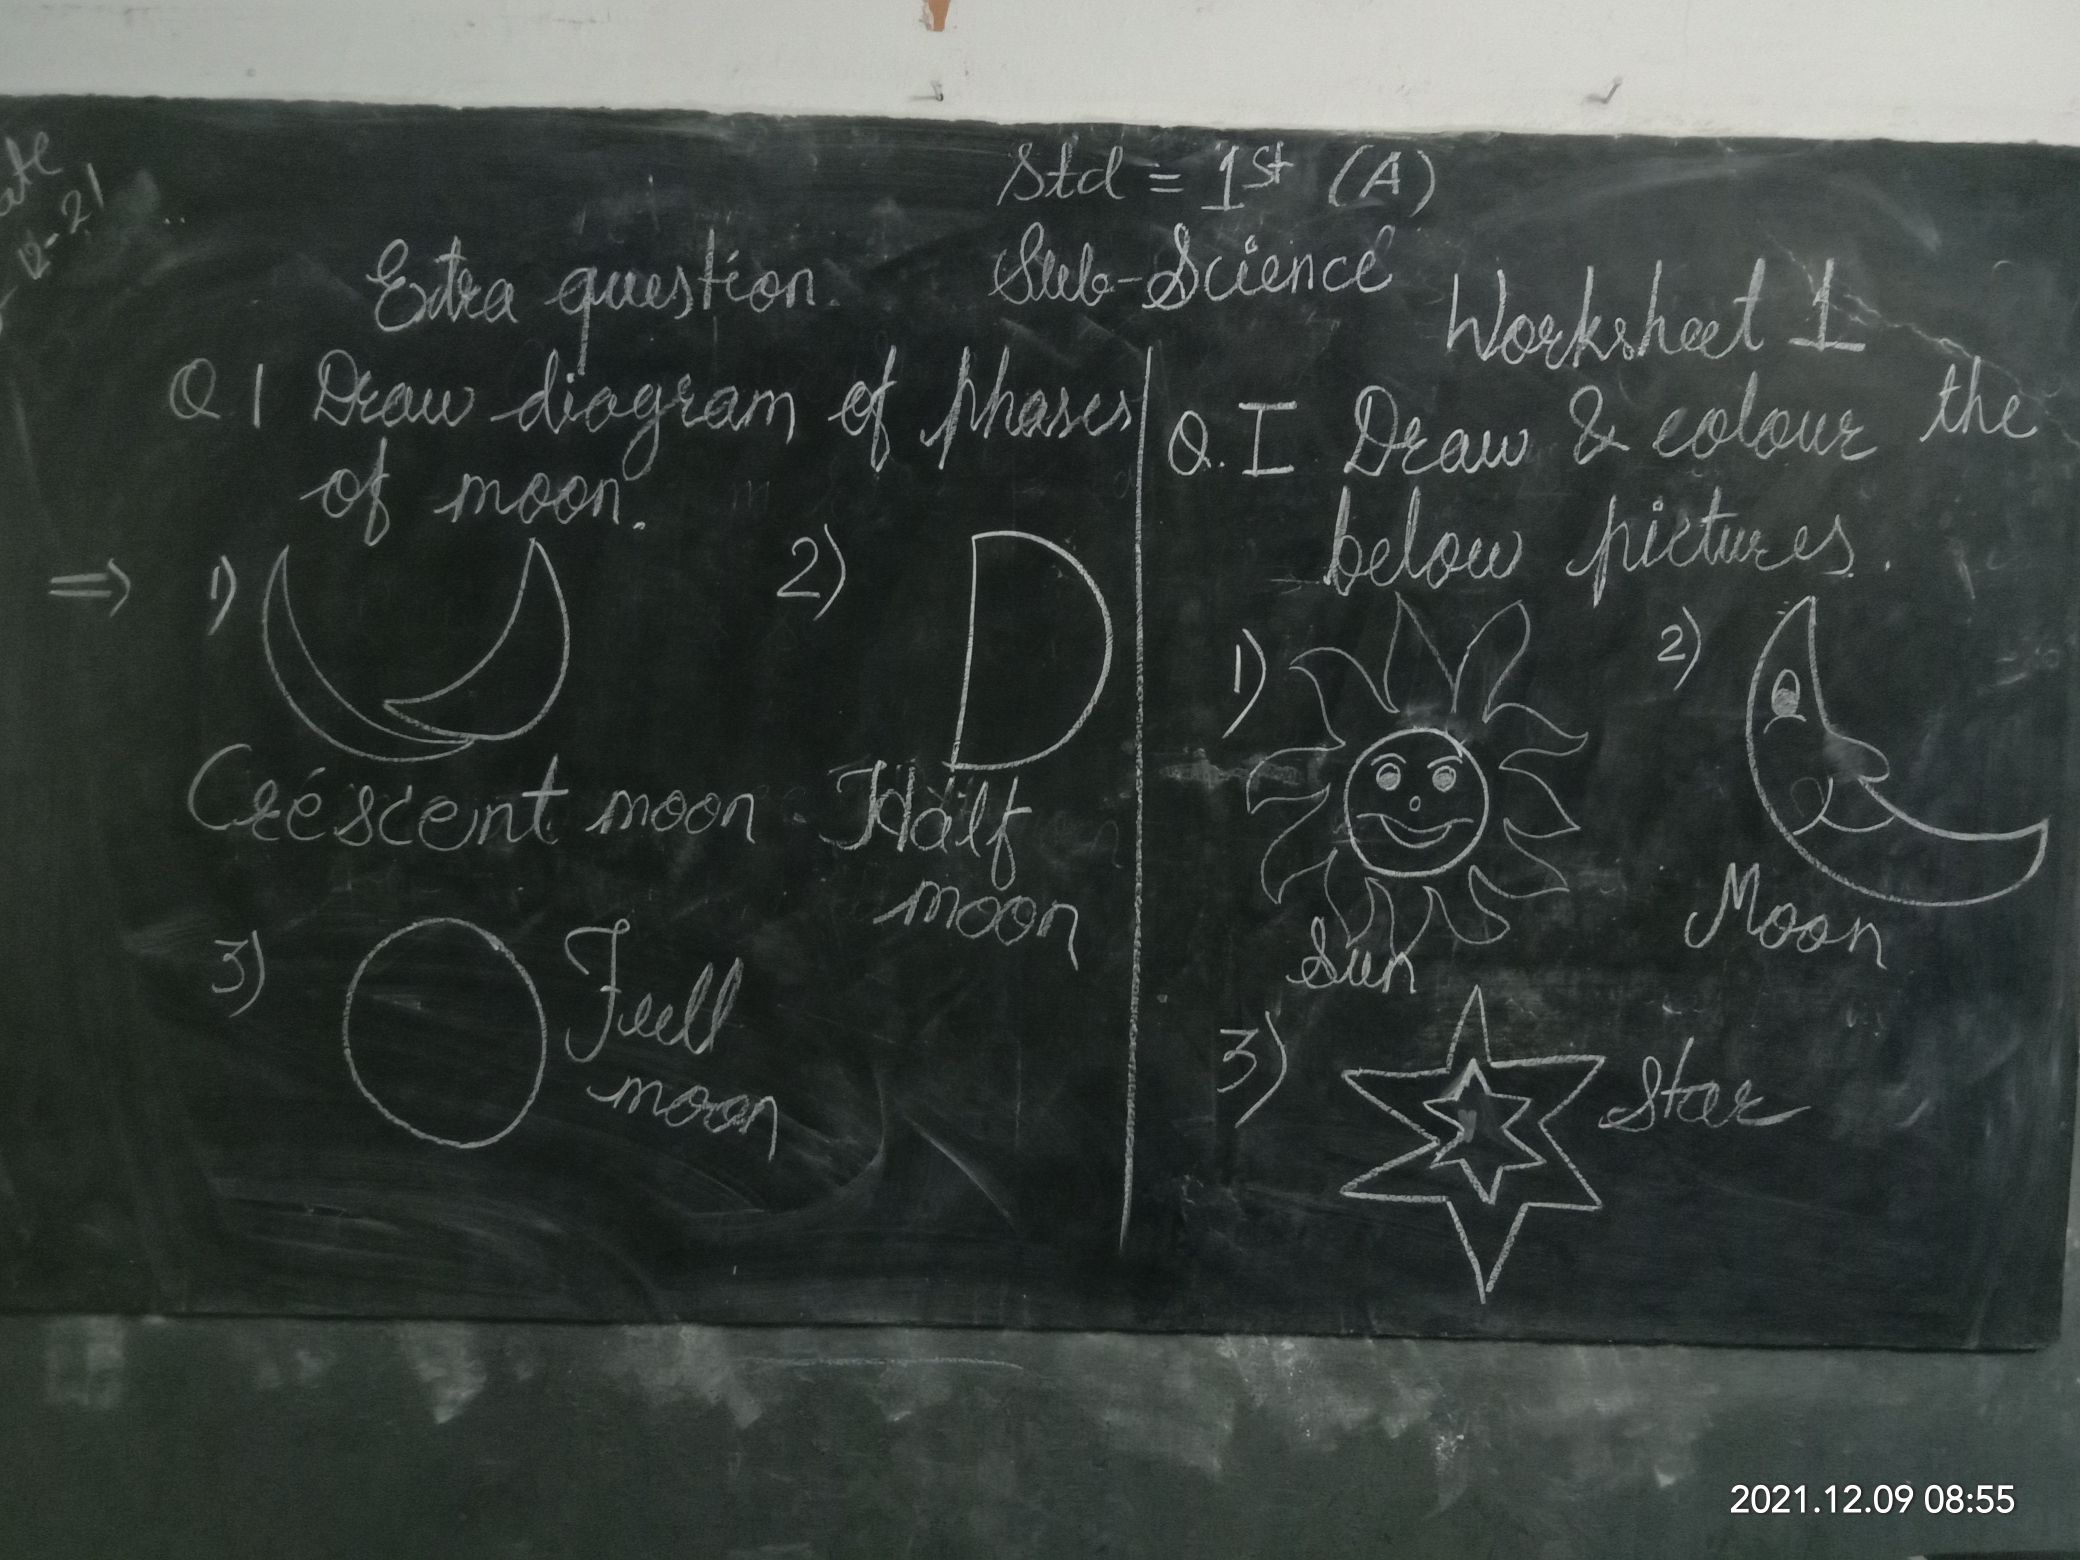 Std = 1st (A)
Sub-Science
Extra question.
Q 1 Draw diagram of phases
of moon.
⇒ 1) 2)
Crescent moon Half
moon
3) Full
moon
Worksheet 1
Q. I Draw & colour the
below pictures.
1) 2)
Sun Moon
3) Star
2021.12.09 08:55